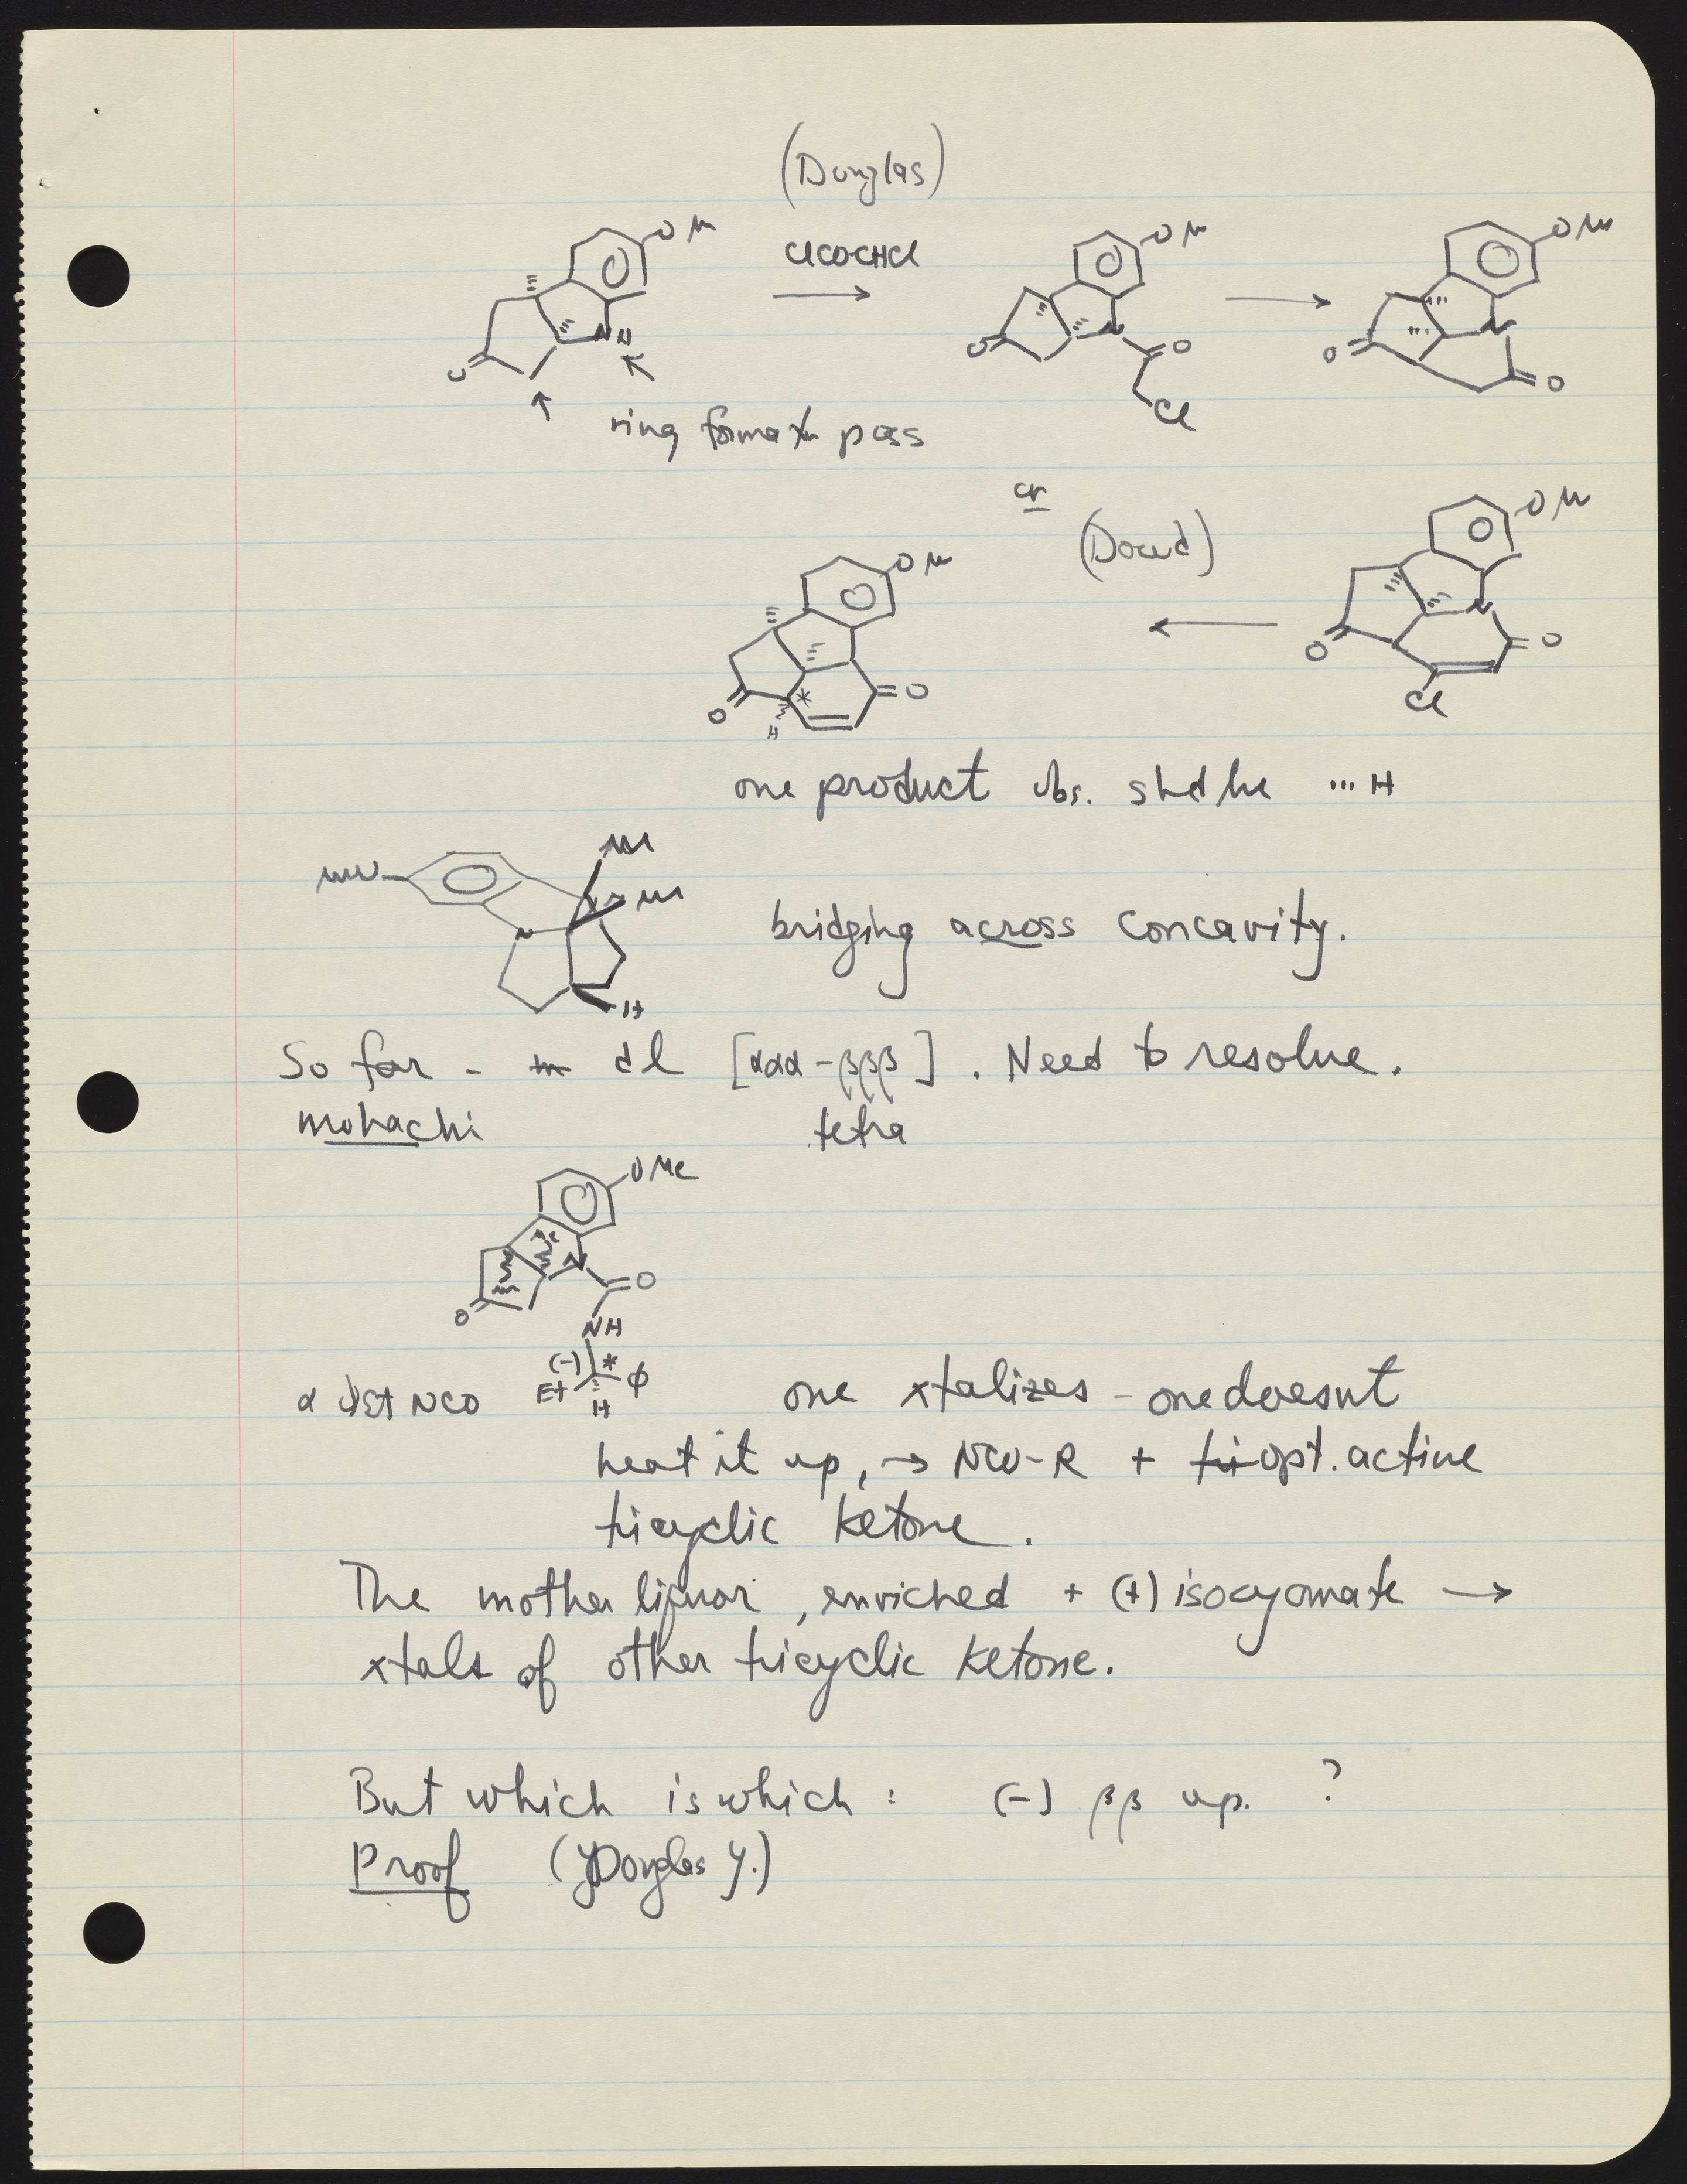 (Douglas)
OM
ClCOCHCl
OM
OM
N
N
O
O
O
Cl
O
O
ring formaxn poss
or
(Dowd)
OM
OM
N
O
O
Cl
O
O
*
H
one product obs. shd be ... H
M
M
N
H
bridging across concavity.
So far - dl [ααα - βββ]. Need to resolve.
Mohachi tetra
OMe
N
O
O
NH
(-) *
Et φ
H
NCO
one xtalizes - one doesnt
heat it up, → NCO-R + opt. active
tricyclic ketone.
The mother liquor, enriched + (+) isocyanate →
xtals of other tricyclic ketone.
But which is which : (-) ββ up. ?
Proof (Douglas Y.)